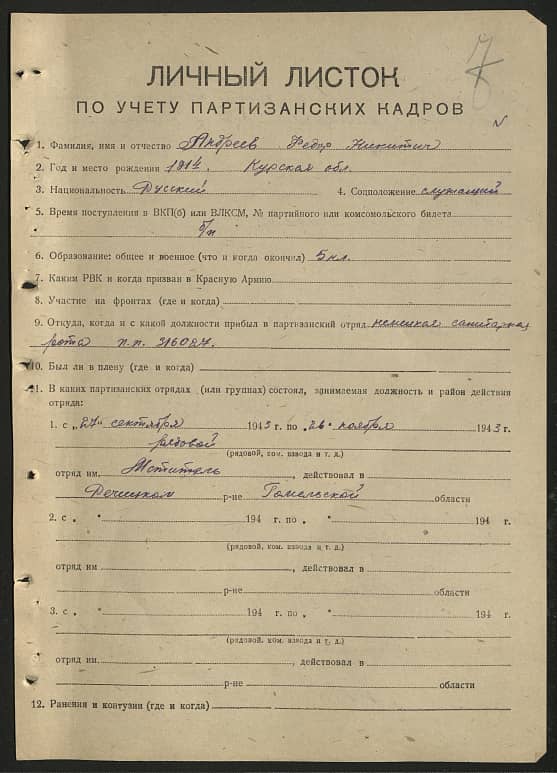 7
ЛИЧНЫЙ ЛИСТОК
ПО УЧЕТУ ПАРТИЗАНСКИХ КАДРОВ
1. Фамилия, имя и отчество Андреев Федор Никитич
2. Год и место рождения 1914. Курская обл.
3. Национальность Русский 4. Соцположение служащий
5. Время поступления в ВКП(б) или ВЛКСМ, № партийного или комсомольского билета
б/п
6. Образование: общее и военное (что и когда окончил) 5 кл.
7. Каким РВК и когда призван в Красную Армию
8. Участие на фронтах (где и когда)
9. Откуда, когда и с какой должности прибыл в партизанский отряд немецкая санитарная
рота п.п. 31608д.
10. Был ли в плену (где и когда)
11. В каких партизанских отрядах (или группах) состоял, занимаемая должность и район действия
отряда:
1. с „27" сентября 1943 г. по „26" ноября 1943 г.
рядовой
(рядовой, ком. взвода и т. д.)
отряд им. Мститель, действовал в
Речицком р-не Гомельской области
2. с „ " 194 г. по „ " 194 г.
(рядовой, ком. взвода и т. д.)
отряд им , действовал в
р-не области
3. с „ " 194 г. по „ " 194 г.
(рядовой, ком. взвода и т. д.)
отряд им. , действовал в
р-не области
12. Ранения и контузии (где и когда)